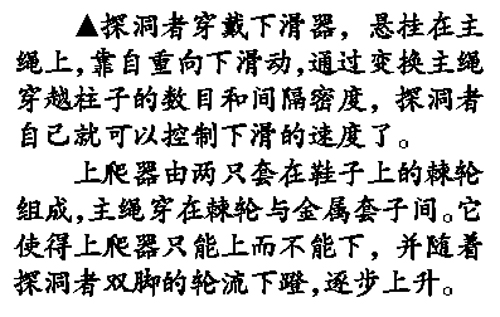 ▲探洞者穿戴下滑器，悬挂在主
绳上，靠自重向下滑动，通过变换主绳
穿越柱子的数目和间隔密度，探洞者
自己就可以控制下滑的速度了。
上爬器由两只套在鞋子上的棘轮
组成，主绳穿在棘轮与金属套子间。它
使得上爬器只能上而不能下，并随着
探洞者双脚的轮流下蹬，逐步上升。